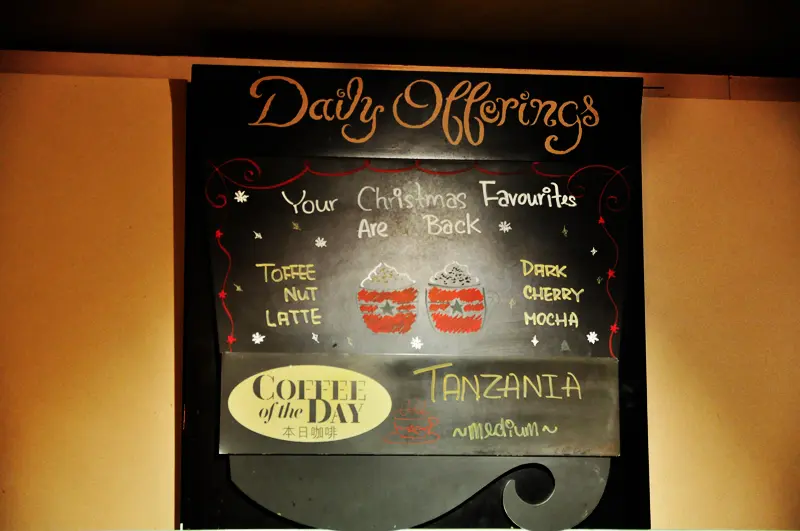 Daily Offerings
Your Christmas Favourites
Are Back
TOFFEE
NUT
LATTE
DARK
CHERRY
MOCHA
COFFEE
of the DAY
本日咖啡
TANZANIA
~medium~